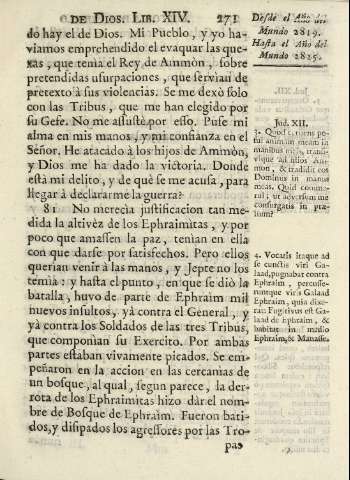 DE DIOS. LIB. XIV. 271
do hay el de Dios. Mi Pueblo, y yo ha-
viamos emprehendido el evaquar las que-
xas, que tenia el Rey de Ammòn, sobre
pretendidas usurpaciones, que servian de
pretexto à sus violencias. Se me dexò solo
con las Tribus, que me han elegido por
su Gefe. No me assustè por esso. Puse mi
alma en mis manos, y mi confianza en el
Señor. He atacado à los hijos de Ammòn,
y Dios me ha dado la victoria. Donde
està mi delito, y de què se me acusa, para
llegar à declararme la guerra?
81 No merecia justificacion tan me-
dida la altivèz de los Ephraimitas, y por
poco que amassen la paz, tenian en ella
con que darse por satisfechos. Pero ellos
querian venir à las manos, y Jepte no los
temia: y hasta el punto, en que se diò la
batalla, huvo de parte de Ephraim mil
nuevos insultos, yà contra el General, y
yà contra los Soldados de las tres Tribus,
que componian su Exercito. Por ambas
partes estaban vivamente picados. Se em-
peñaron en la accion en las cercanias de
un bosque, al qual, segun parece, la der-
rota de los Ephraimitas hizo dàr el nom-
bre de Bosque de Ephraim. Fueron bati-
dos, y disipados los agressores por las Tro-
pas
Desde el Año del
Mundo 2819.
Hasta el Año del
Mundo 2825.
Jud. XII.
3. Quod cernens po-
sui animam meam in
manibus meis, transi-
vique ad filios Am-
mon, & tradidit eos
Dominus in manus
meas. Quid comme-
rui, ut adversum me
consurgatis in præ-
lium?
4. Vocatis itaque ad
se cunctis viris Ga-
laad, pugnabat contra
Ephraim, percusse-
runtque viri Galaad
Ephraim, quia dixe-
rat: Fugitivus est Ga-
laad de Ephraim, &
habitat in medio
Ephraim, & Manasse.